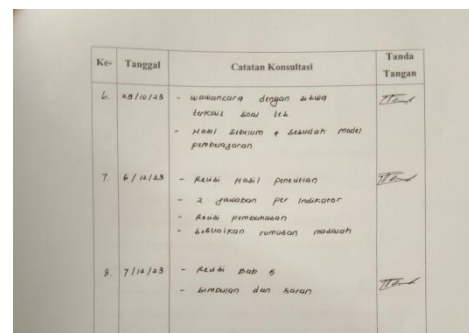 Ke- Tanggal Catatan Konsultasi Tanda Tangan
6. 28/10/23 - wawancara dengan siswa
terkait soal tes
- Hasil sebelum & sesudah model
pembelajaran
7. 6/12/23 - Revisi Hasil penelitian
- 2 jawaban per Indikator
- Revisi pembahasan
- Sesuaikan rumusan masalah
8. 7/12/23 - Revisi Bab 5
- Simpulan dan Saran